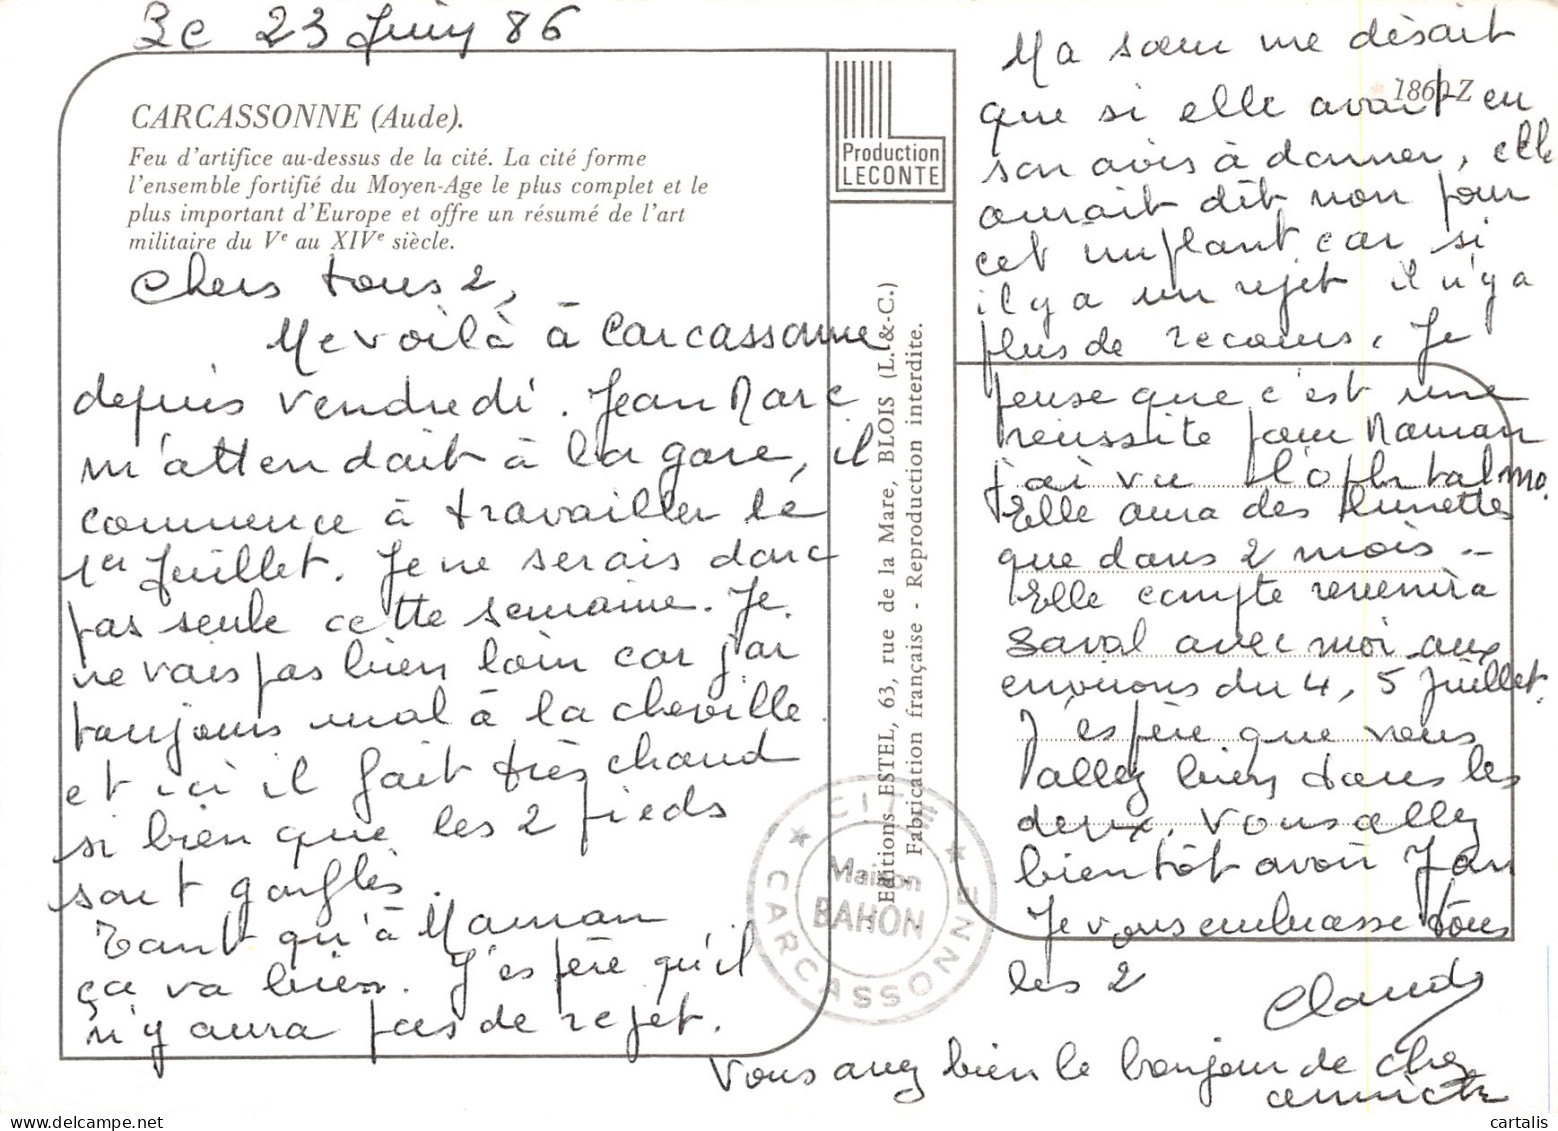 3c 23 Juin 86
CARCASSONNE (Aude).
Feu d'artifice au-dessus de la cité. La cité forme
l'ensemble fortifié du Moyen-Age le plus complet et le
plus important d'Europe et offre un résumé de l'art
militaire du Ve au XIVe siècle.
Chers tous 2,
Me voilà à Carcassonne
depuis vendredi. Jean Marc
m'attendait à la gare, il
commence à travailler le
1er Juillet. Je ne serais donc
pas seule cette semaine. Je
ne vais pas bien loin car j'ai
toujours mal à la cheville
et ici il fait très chaud
si bien que les 2 pieds
sont gonflés.
Tant qu'à Maman
ça va bien. J'espère qu'il
n'y aura pas de rejet.
Production
LECONTE
Editions ESTEL, 63, rue de la Mare, BLOIS (L.-&-C.)
Fabrication française - Reproduction interdite.
CITE
Maison
BAHON
CARCASSONNE
1860 Z
Ma sœur me disait
que si elle avait eu
son avis à donner, elle
aurait dit non pour
cet implant car si
il y a un rejet il n'y a
plus de recours. Je
pense que c'est une
réussite pour Maman
j'ai vu l'ophtalmo.
Elle aura des lunettes
que dans 2 mois.
Elle compte revenir à
Laval avec moi aux
environs du 4, 5 Juillet.
J'espère que vous
allez bien tous les
deux. Vous allez
bientôt avoir Jan
Je vous embrasse tous
les 2
Claude
Vous avez bien le bonjour de chez
cartalis